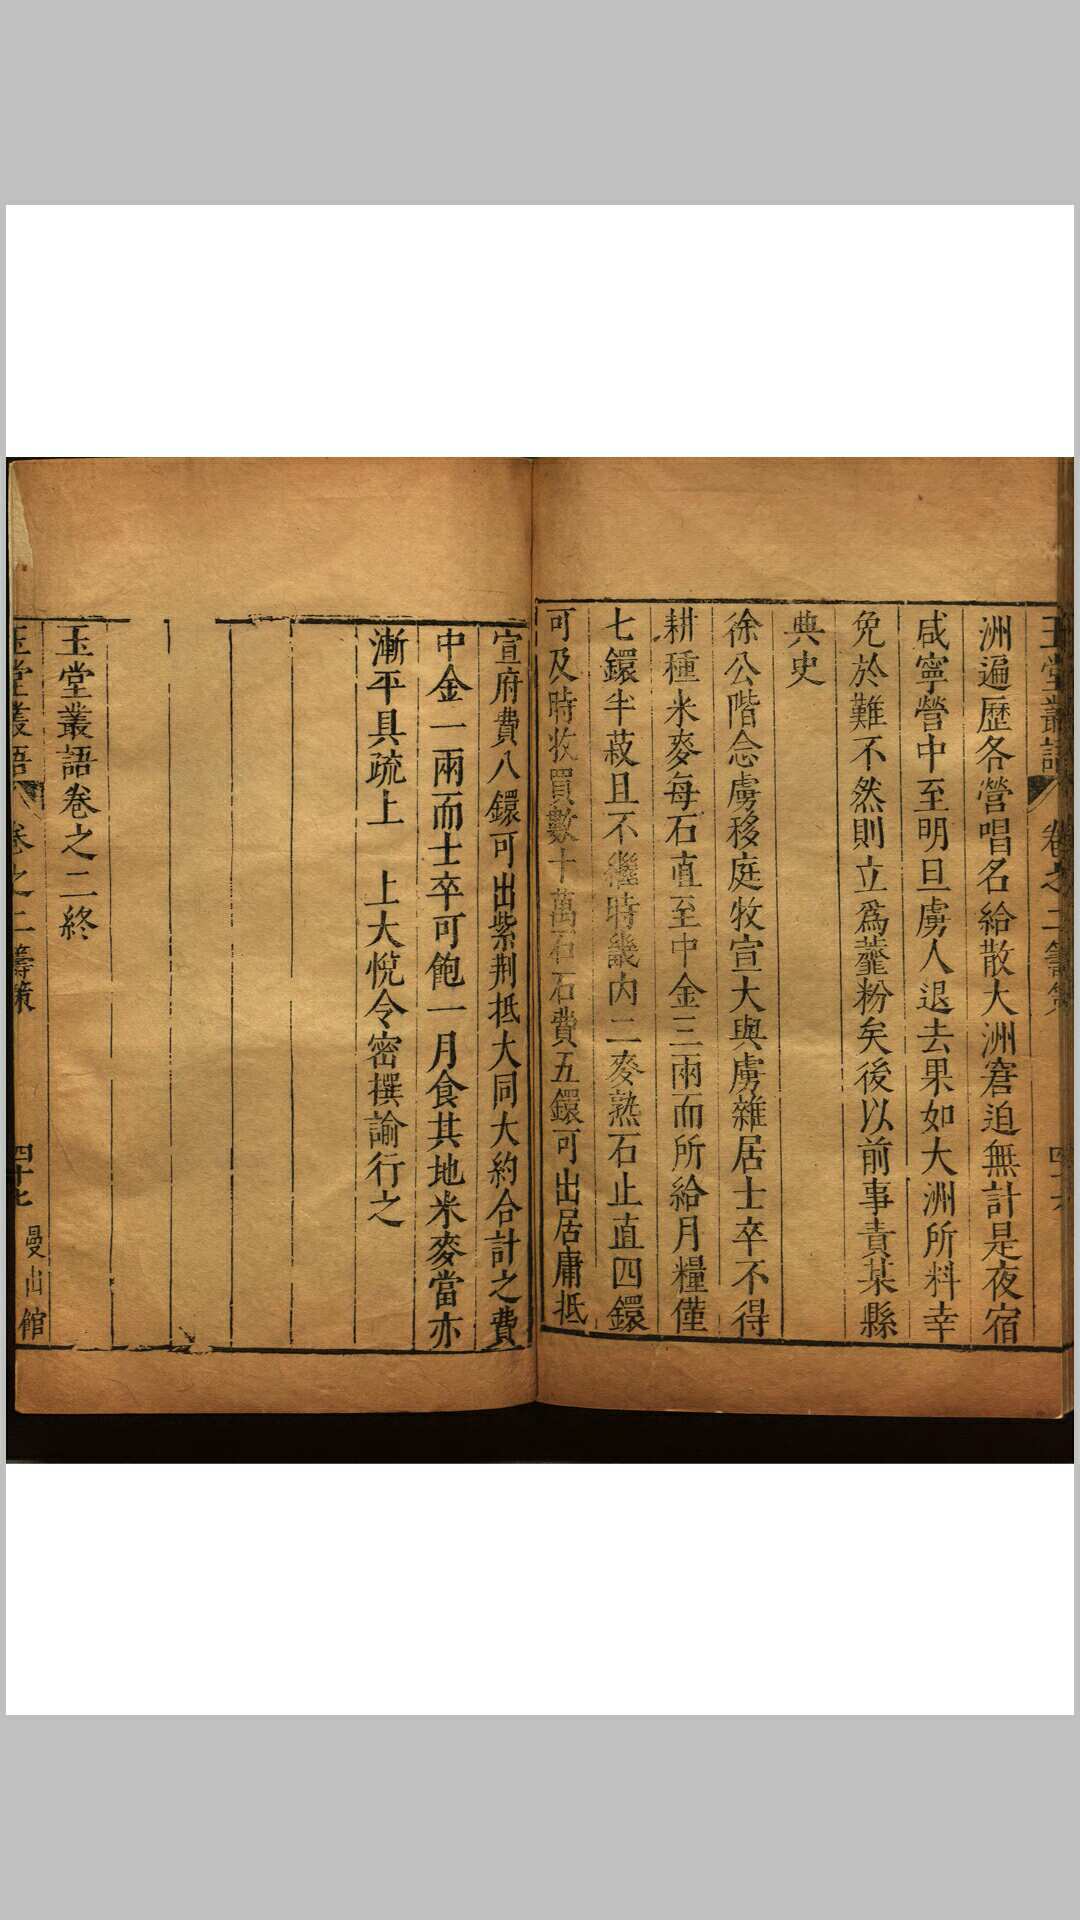 玉堂叢語 卷之二籌策 四十六
洲遍歷各營唱名給散大洲窘迫無計是夜宿
咸寧營中至明旦虜人退去果如大洲所料幸
免於難不然則立為虀粉矣後以前事責某縣
典史
徐公階念虜移庭牧宣大與虜雜居士卒不得
耕種米麥每石直至中金三兩而所給月糧僅
七鐶半菽且不繼時畿內二麥熟石止直四鐶
可及時收買數十萬石石費五鐶可出居庸抵
宣府費八鐶可出紫荆抵大同大約合計之費
中金一兩而士卒可飽一月食其地米麥當亦
漸平具疏上 上大悅令密撰諭行之
玉堂叢語卷之二終
玉堂叢語 卷之二籌策 四十七 曼山館